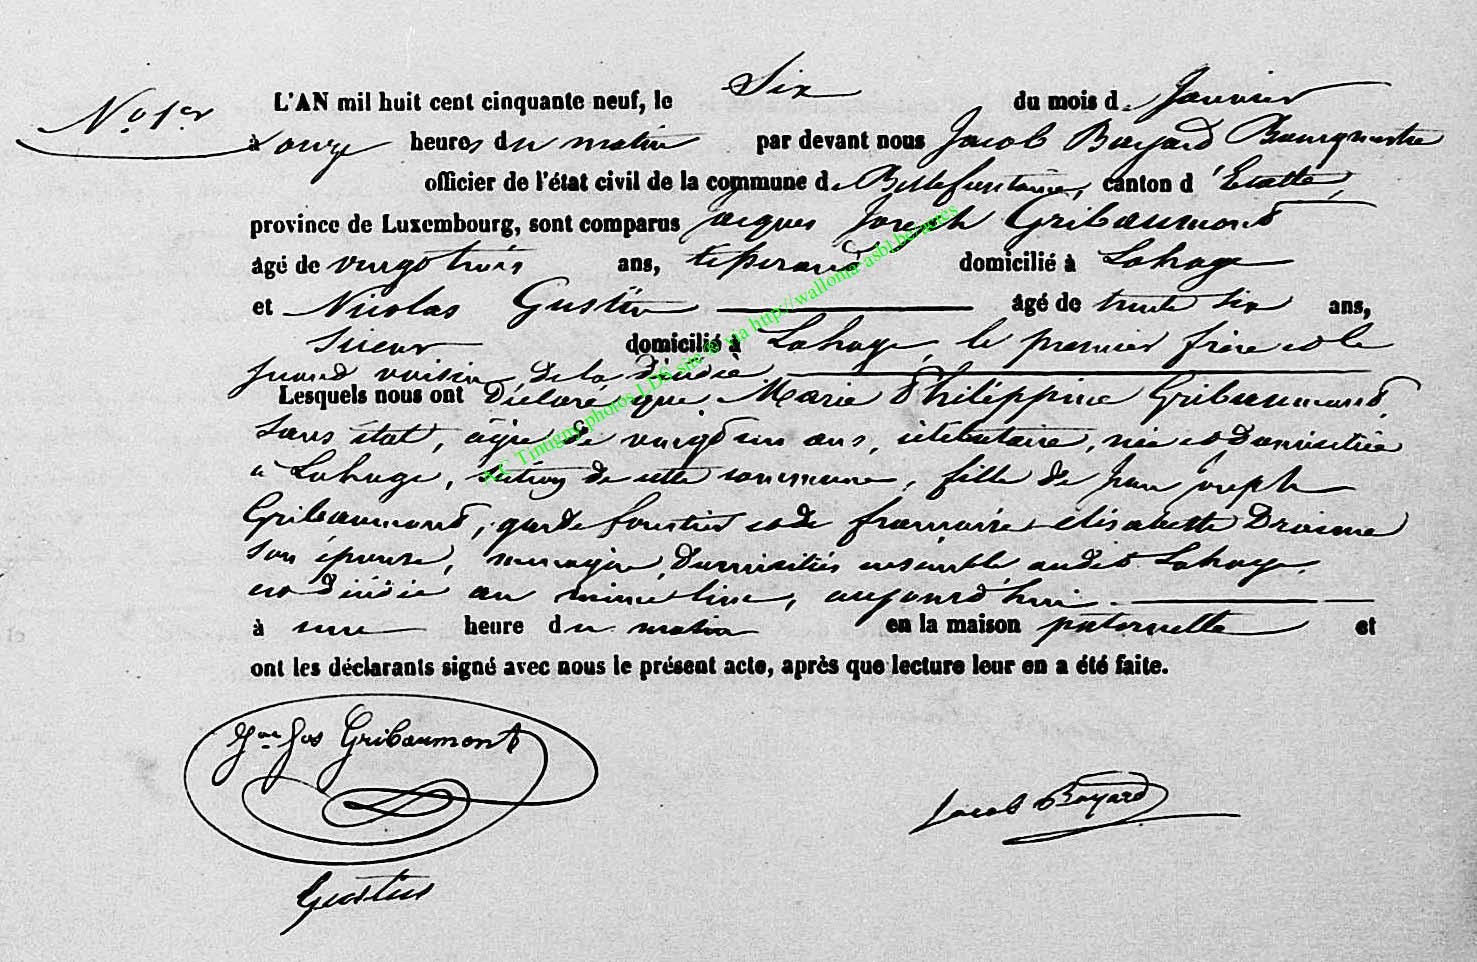 N° 1er
L'AN mil huit cent cinquante neuf, le Six du mois de Janvier
à onze heures du matin par devant nous Jacob Bayard Bourgmestre
officier de l'état civil de la commune de Bellefontaine, canton d'Etalle,
province de Luxembourg, sont comparus Jacques Joseph Gribaumont
âgé de vingt trois ans, domicilié à Lahage
et Nicolas Gustin âgé de trente six ans,
domicilié à Lahage, le premier frère et le
second voisin de la décédée
Lesquels nous ont Déclaré que Marie Philippine Gribaumont,
sans état, âgée de vingt un ans, célibataire, née et domiciliée
à Lahage, section de cette commune, fille de Jean Joseph
Gribaumont, garde forestier et de françoise elisabette
son épouse, menagère, domiciliés ensemble audit Lahage,
est décédée au même lieu, aujourd'hui
à une heure du matin en la maison paternelle et
ont les déclarants signé avec nous le présent acte, après que lecture leur en a été faite.
Jos Gribaumont
Jacob Bayard
Gustin
A.C Tintigny photos LDS site @ via http://wallonia-asbl.be/actes